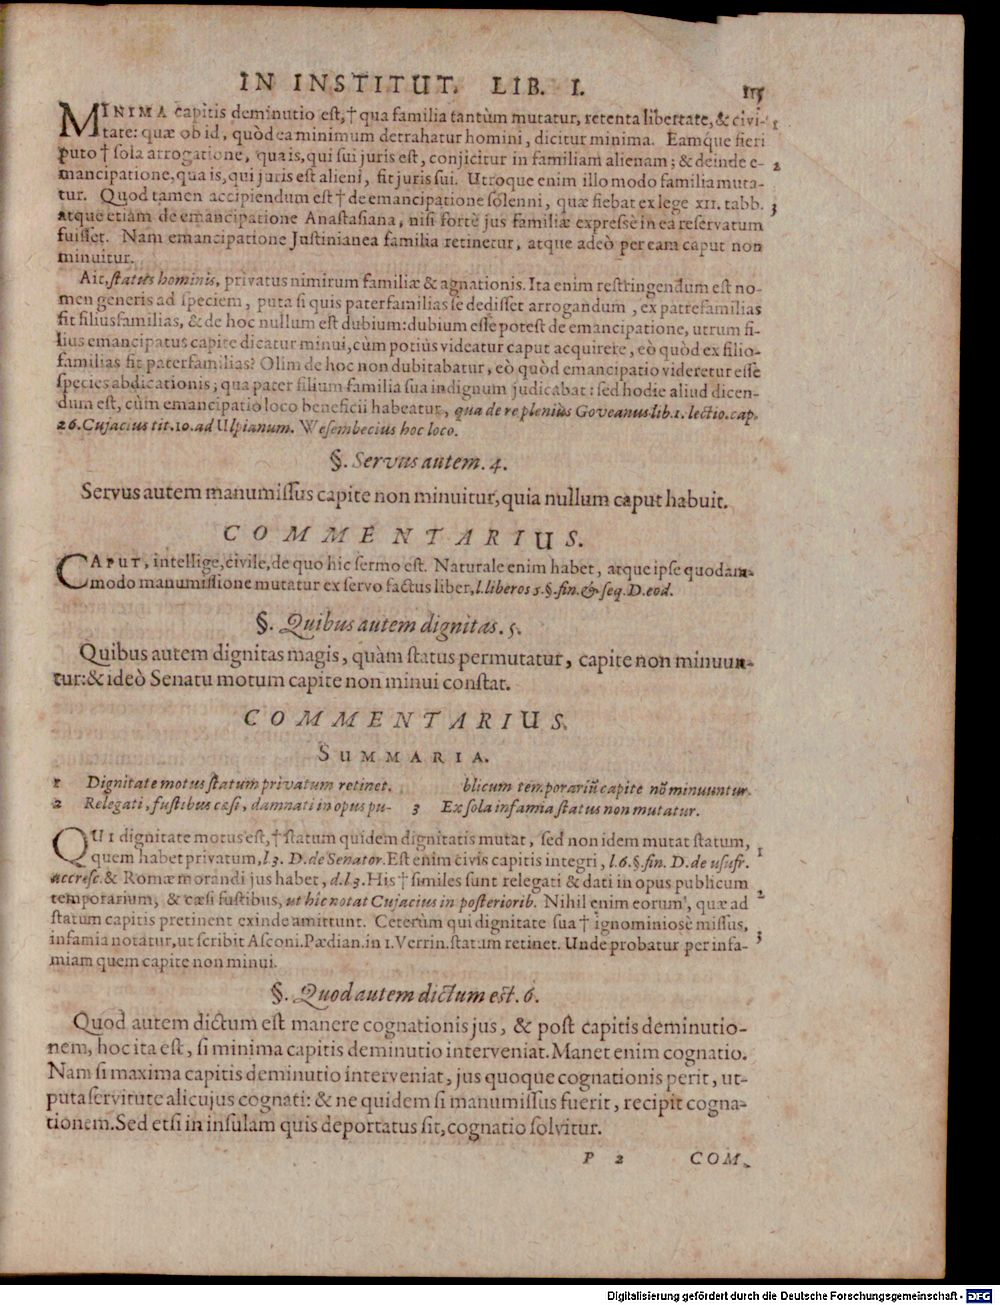 IN INSTITUT. LIB. I. 115
MINIMA capitis deminutio est,† qua familia tantùm mutatur, retenta libertate, & civi- 1
tate: quæ ob id, quòd ea minimum detrahatur homini, dicitur minima. Eamque fieri
puto † sola arrogatione, qua is, qui sui juris est, conjicitur in familiam alienam; & deinde e- 2
mancipatione, qua is, qui juris est alieni, fit juris sui. Utroque enim illo modo familia muta-
tur. Quod tamen accipiendum est † de emancipatione solenni, quæ fiebat ex lege XII. tabb. 3
atque etiam de emancipatione Anastasiana, nisi fortè jus familiæ expressè in ea reservatum
fuisset. Nam emancipatione Justinianea familia retinetur, atque adeò per eam caput non
minuitur.
Ait, status hominis, privatus nimirum familiæ & agnationis. Ita enim restringendum est no-
men generis ad speciem, puta si quis paterfamilias se dedisset arrogandum, ex patrefamilias
fit filiusfamilias, & de hoc nullum est dubium: dubium esse potest de emancipatione, utrum fi-
lius emancipatus capite dicatur minui, cùm potiùs videatur caput acquirere, eò quòd ex filio-
familias fit paterfamilias? Olim de hoc non dubitabatur, eò quòd emancipatio videretur esse
species abdicationis; qua pater filium familia sua indignum judicabat: sed hodie aliud dicen-
dum est, cùm emancipatio loco beneficii habeatur, qua de re pleniùs Goveanus lib. 1. lectio. cap.
26. Cujacius tit. 10. ad Ulpianum. Wesembecius hoc loco.
§. Servus autem. 4.
Servus autem manumissus capite non minuitur, quia nullum caput habuit.
COMMENTARIUS.
CAPUT, intellige, civile, de quo hic sermo est. Naturale enim habet, atque ipse quodam-
modo manumissione mutatur ex servo factus liber, l. liberos 5. §. fin. & seq. D. eod.
§. Quibus autem dignitas. 5.
Quibus autem dignitas magis, quàm status permutatur, capite non minuun-
tur: & ideò Senatu motum capite non minui constat.
COMMENTARIUS.
SUMMARIA.
1 Dignitate motus statum privatum retinet.
2 Relegati, fustibus cæsi, damnati in opus pu-
blicum temporariũ capite nõ minuuntur.
3 Ex sola infamia status non mutatur.
QUI dignitate motus est, † statum quidem dignitatis mutat, sed non idem mutat statum, 1
quem habet privatum, l. 3. D. de Senator. Est enim civis capitis integri, l. 6. §. fin. D. de usufr.
accresc. & Romæ morandi jus habet, d. l. 3. His † similes sunt relegati & dati in opus publicum 2
temporarium, & cæsi fustibus, ut hic notat Cujacius in posteriorib. Nihil enim eorum, quæ ad
statum capitis pretinent exinde amittunt. Ceterùm qui dignitate sua † ignominiosè missus, 3
infamia notatur, ut scribit Asconi. Pædian. in 1. Verrin. statum retinet. Unde probatur per infa-
miam quem capite non minui.
§. Quod autem dictum est. 6.
Quod autem dictum est manere cognationis jus, & post capitis deminutio-
nem, hoc ita est, si minima capitis deminutio interveniat. Manet enim cognatio.
Nam si maxima capitis deminutio interveniat, jus quoque cognationis perit, ut-
puta servitute alicujus cognati: & ne quidem si manumissus fuerit, recipit cogna-
tionem. Sed etsi in insulam quis deportatus sit, cognatio solvitur.
P 2 COM-
Digitalisierung gefördert durch die Deutsche Forschungsgemeinschaft - DFG